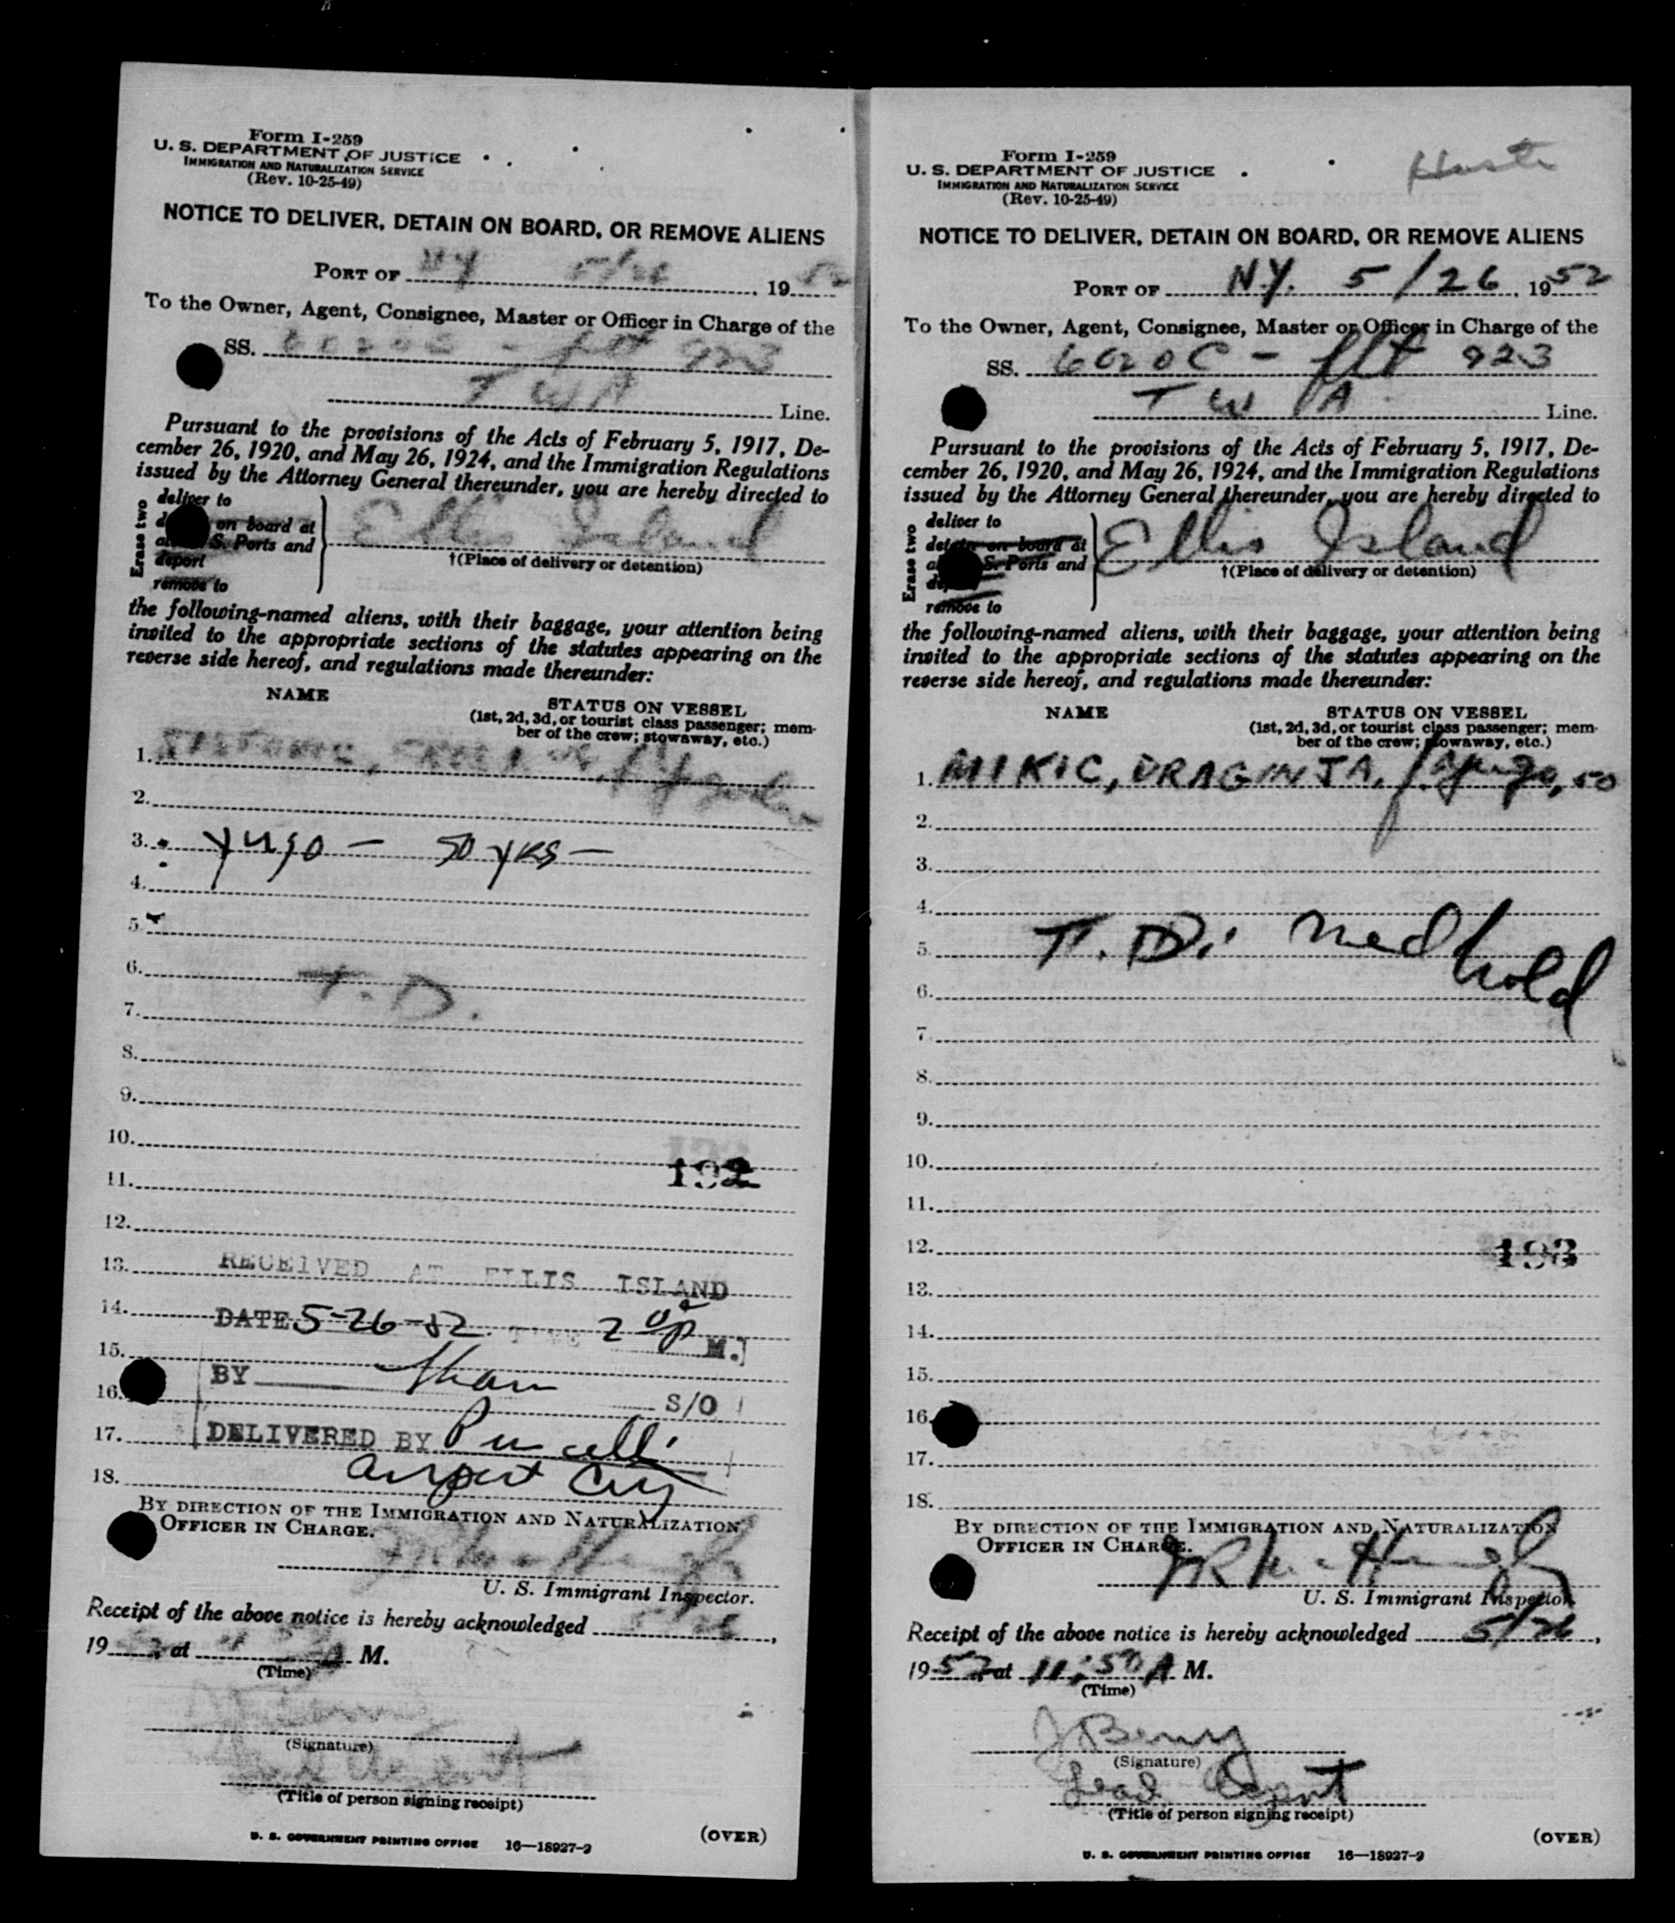 Form I-259
U. S. DEPARTMENT OF JUSTICE
IMMIGRATION AND NATURALIZATION SERVICE
(Rev. 10-25-49)
NOTICE TO DELIVER, DETAIN ON BOARD, OR REMOVE ALIENS
PORT OF NY 5/26, 1952
To the Owner, Agent, Consignee, Master or Officer in Charge of the
SS. 6020C - flt 923
TWA Line.
Pursuant to the provisions of the Acts of February 5, 1917, De-
cember 26, 1920, and May 26, 1924, and the Immigration Regulations
issued by the Attorney General thereunder, you are hereby directed to
Erase two
deliver to
on board at
S. Ports and
deport
remove to
Ellis Island
†(Place of delivery or detention)
the following-named aliens, with their baggage, your attention being
invited to the appropriate sections of the statutes appearing on the
reverse side hereof, and regulations made thereunder:
NAME
STATUS ON VESSEL
(1st, 2d, 3d, or tourist class passenger; mem-
ber of the crew; stowaway, etc.)
1.
2.
3. yugo - 50 yrs -
4.
5.
6. T. D.
7.
8.
9.
10.
192
11.
12.
13. RECEIVED AT ELLIS ISLAND
14. DATE 5-26-52 TIME 2 00 P M.
15.
BY S/O
16.
17. DELIVERED BY Purcelli
18. airport
BY DIRECTION OF THE IMMIGRATION AND NATURALIZATION
OFFICER IN CHARGE.
U. S. Immigrant Inspector.
Receipt of the above notice is hereby acknowledged 5/26,
1952 at A M.
(Time)
(Signature)
Lead Agent
(Title of person signing receipt)
U. S. GOVERNMENT PRINTING OFFICE 16—18927-2
(OVER)
Form I-259
U. S. DEPARTMENT OF JUSTICE
IMMIGRATION AND NATURALIZATION SERVICE
(Rev. 10-25-49)
NOTICE TO DELIVER, DETAIN ON BOARD, OR REMOVE ALIENS
PORT OF N.Y. 5/26, 1952
To the Owner, Agent, Consignee, Master or Officer in Charge of the
SS. 6020C - flt 923
TWA Line.
Pursuant to the provisions of the Acts of February 5, 1917, De-
cember 26, 1920, and May 26, 1924, and the Immigration Regulations
issued by the Attorney General thereunder, you are hereby directed to
Erase two
deliver to
detain on board at
S. Ports and
remove to
Ellis Island
†(Place of delivery or detention)
the following-named aliens, with their baggage, your attention being
invited to the appropriate sections of the statutes appearing on the
reverse side hereof, and regulations made thereunder:
NAME
STATUS ON VESSEL
(1st, 2d, 3d, or tourist class passenger; mem-
ber of the crew; stowaway, etc.)
1. MIKIC, DRAGINJA, f. yugo, 50
2.
3.
4.
5. T. D. med hold
6.
7.
8.
9.
10.
11.
12. 193
13.
14.
15.
16.
17.
18.
BY DIRECTION OF THE IMMIGRATION AND NATURALIZATION
OFFICER IN CHARGE.
U. S. Immigrant Inspector.
Receipt of the above notice is hereby acknowledged 5/26,
1952 at 11:50 A M.
(Time)
J Berry
(Signature)
Lead Agent
(Title of person signing receipt)
U. S. GOVERNMENT PRINTING OFFICE 16—18927-2
(OVER)